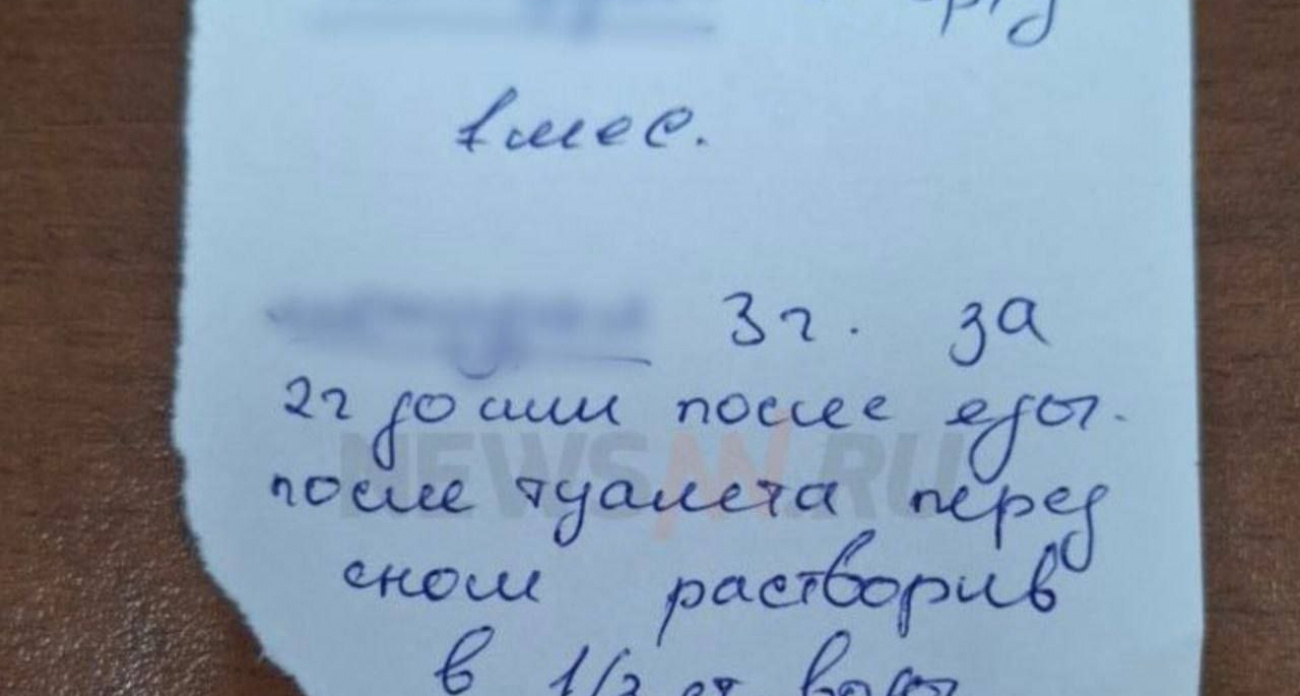 1 мес.
3 г. за
2г до или после еды.
после туалета перед
сном растворив
в 1/2 ст воды
NEWSAN.RU